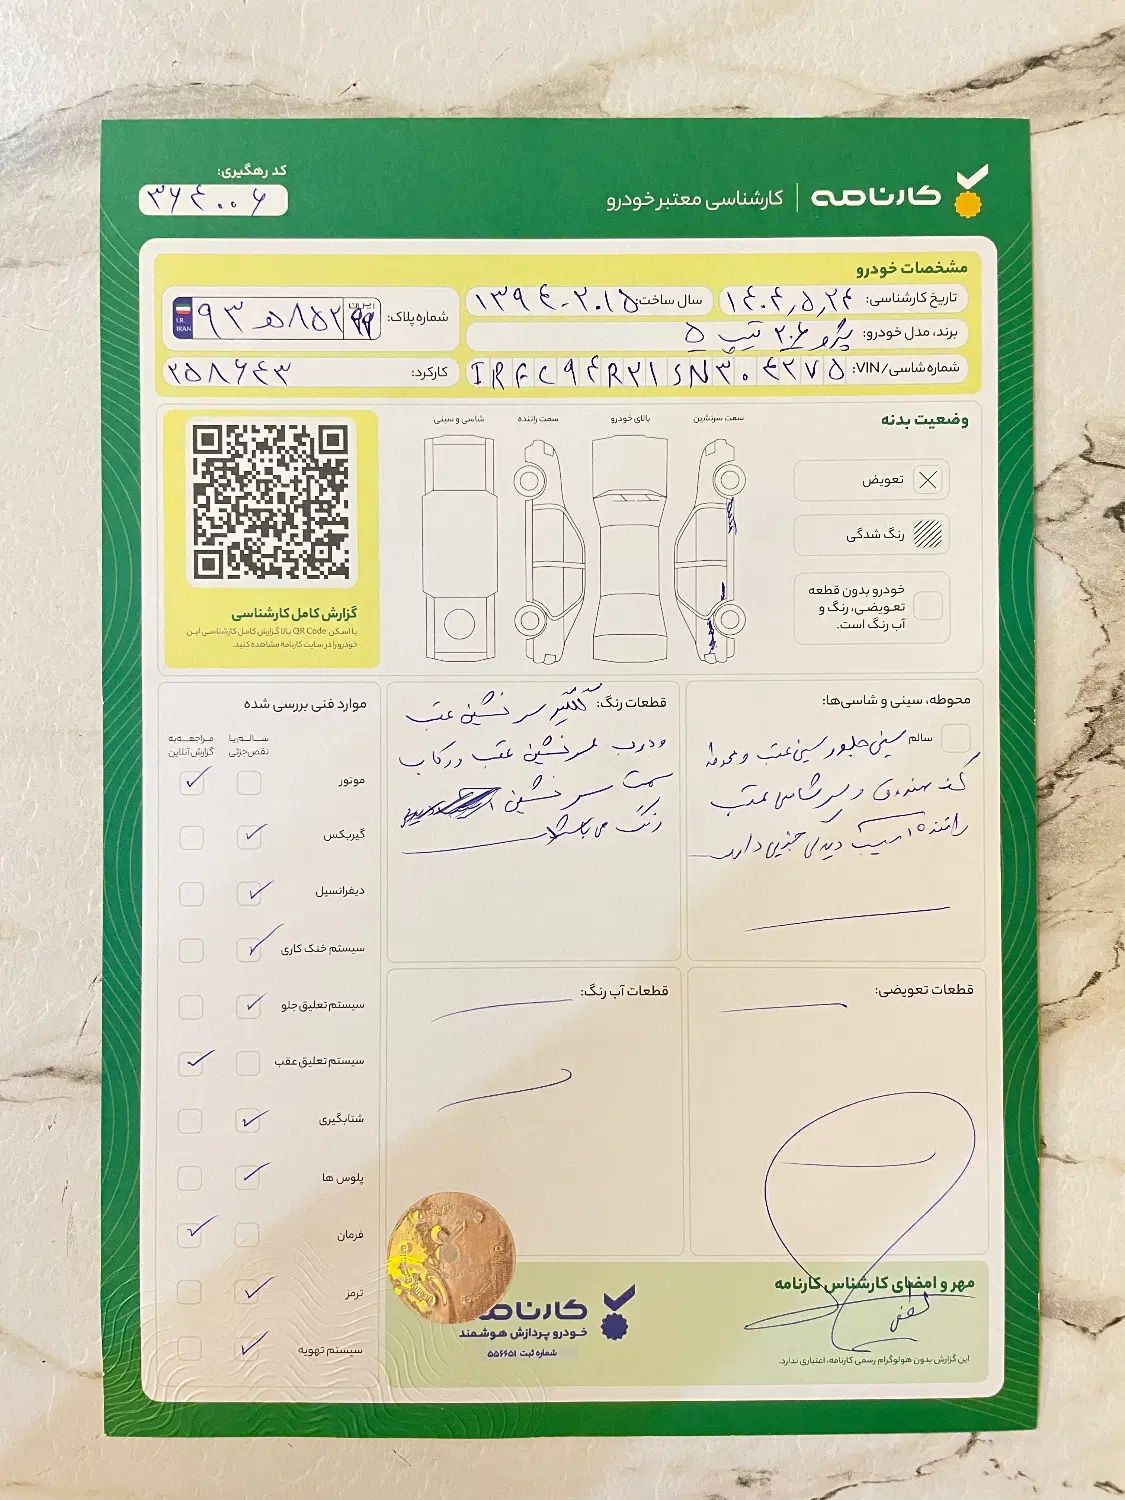 کارنامه | کارشناسی معتبر خودرو
کد رهگیری:
۳۶۴۰۰۶
مشخصات خودرو
تاریخ کارشناسی: ۱۴۰۴,۵,۲۴
سال ساخت: ۱۳۹۴-۲۰۱۵
شماره پلاک: ۹۳ ه ۸۵۲ ایران ۹۹
I.R. IRAN
برند، مدل خودرو: پژو ۲۰۶ تیپ ۵
شماره شاسی/VIN: IRFC94R21SN304275
کارکرد: ۲۵۸۶۴۳
وضعیت بدنه
تعویض
رنگ شدگی
خودرو بدون قطعه
تعویضی، رنگ و
آب رنگ است.
سمت سرنشین
بالای خودرو
سمت راننده
شاسی و سینی
گزارش کامل کارشناسی
با اسکن QR Code بالا گزارش کامل کارشناسی این
خودرو را در سایت کارنامه مشاهده کنید.
محوطه، سینی و شاسی‌ها:
سالم
سینی جلو و سینی عقب و محوطه
کف صندوق و سر شاسی عقب
راننده آسیب دیدگی جزیی دارد
قطعات رنگ: گلگیر سرنشین عقب
و درب سرنشین عقب و رکاب
سمت سرنشین
رنگ می باشد
قطعات تعویضی:
قطعات آب رنگ:
موارد فنی بررسی شده
سالم یا
نقص جزئی
مراجعه به
گزارش آنلاین
موتور
گیربکس
دیفرانسیل
سیستم خنک کاری
سیستم تعلیق جلو
سیستم تعلیق عقب
شتابگیری
پلوس ها
فرمان
ترمز
سیستم تهویه
مهر و امضای کارشناس کارنامه
این گزارش بدون هولوگرام رسمی کارنامه، اعتباری ندارد.
کارنامه
خودرو پردازش هوشمند
شماره ثبت ۵۵۶۶۵۱